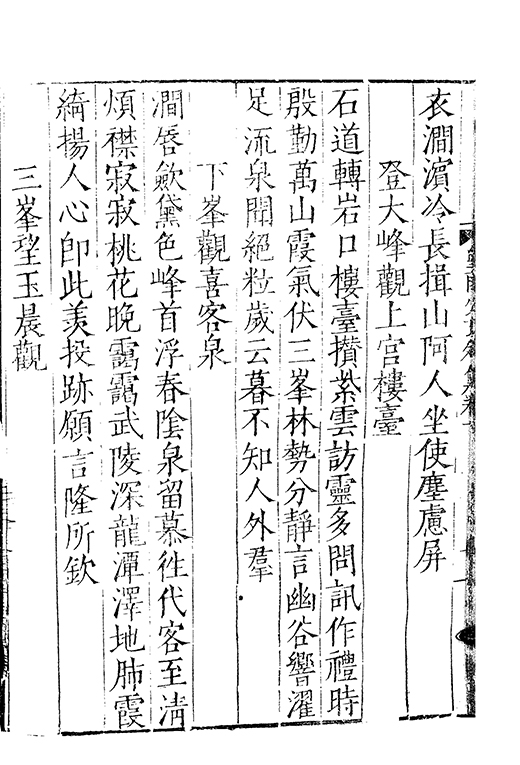 衣澗濵冷長揖山阿人坐使塵慮屏
登大峰觀上宫樓臺
石道轉岩口樓臺攢紫雲訪靈多問訊作禮時
殷勤萬山霞氣伏三峯林勢分靜言幽谷響濯
足流泉聞絕粒歲云暮不知人外羣
下峯觀喜客泉
澗唇歛黛色峰首浮春陰泉留慕徃代客至清
煩襟寂寂桃花晚靄靄武陵深龍潭澤地肺霞
綺揚人心卽此羡投跡願言隆所欽
三峯望玉晨觀